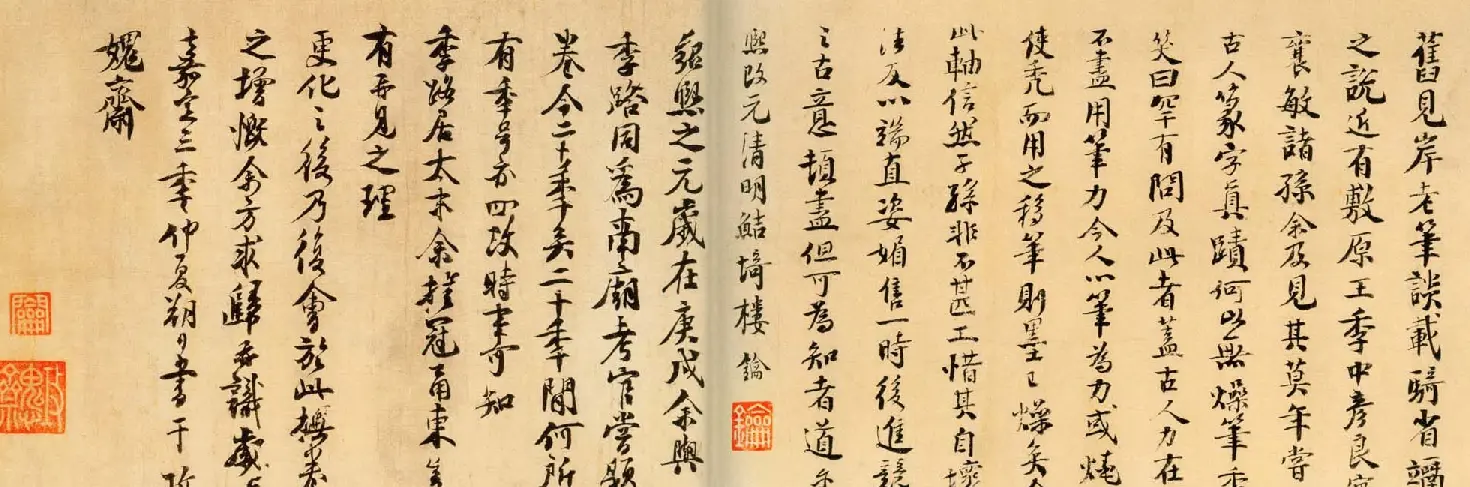 舊見岸老筆談載騎省
之說近有敷原王季中彥良
襄敏諸孫余及見其莫年嘗
古人篆字真蹟何以無燥筆
笑曰罕有問及此者蓋古人力在
不盡用筆力今人以筆為力或燒
使禿而用之移筆則墨已燥矣
此軸信然子孫非不甚工惜其自壞
法反以端直姿媚售一時後進競
之古意頓盡但可為知者道
熙改元清明鮚埼樓鑰
紹熙之元歲在庚戌余與
季路同為南廟考官嘗題
卷今二十季矣二十季間何所
有季号亦四改時事可知
季路居太末余挂冠甬東
有再見之理
更化之後乃復會於此撫卷
之增慨余方求歸再識歲
嘉定三季仲夏朔日書于
媿齋
鑰